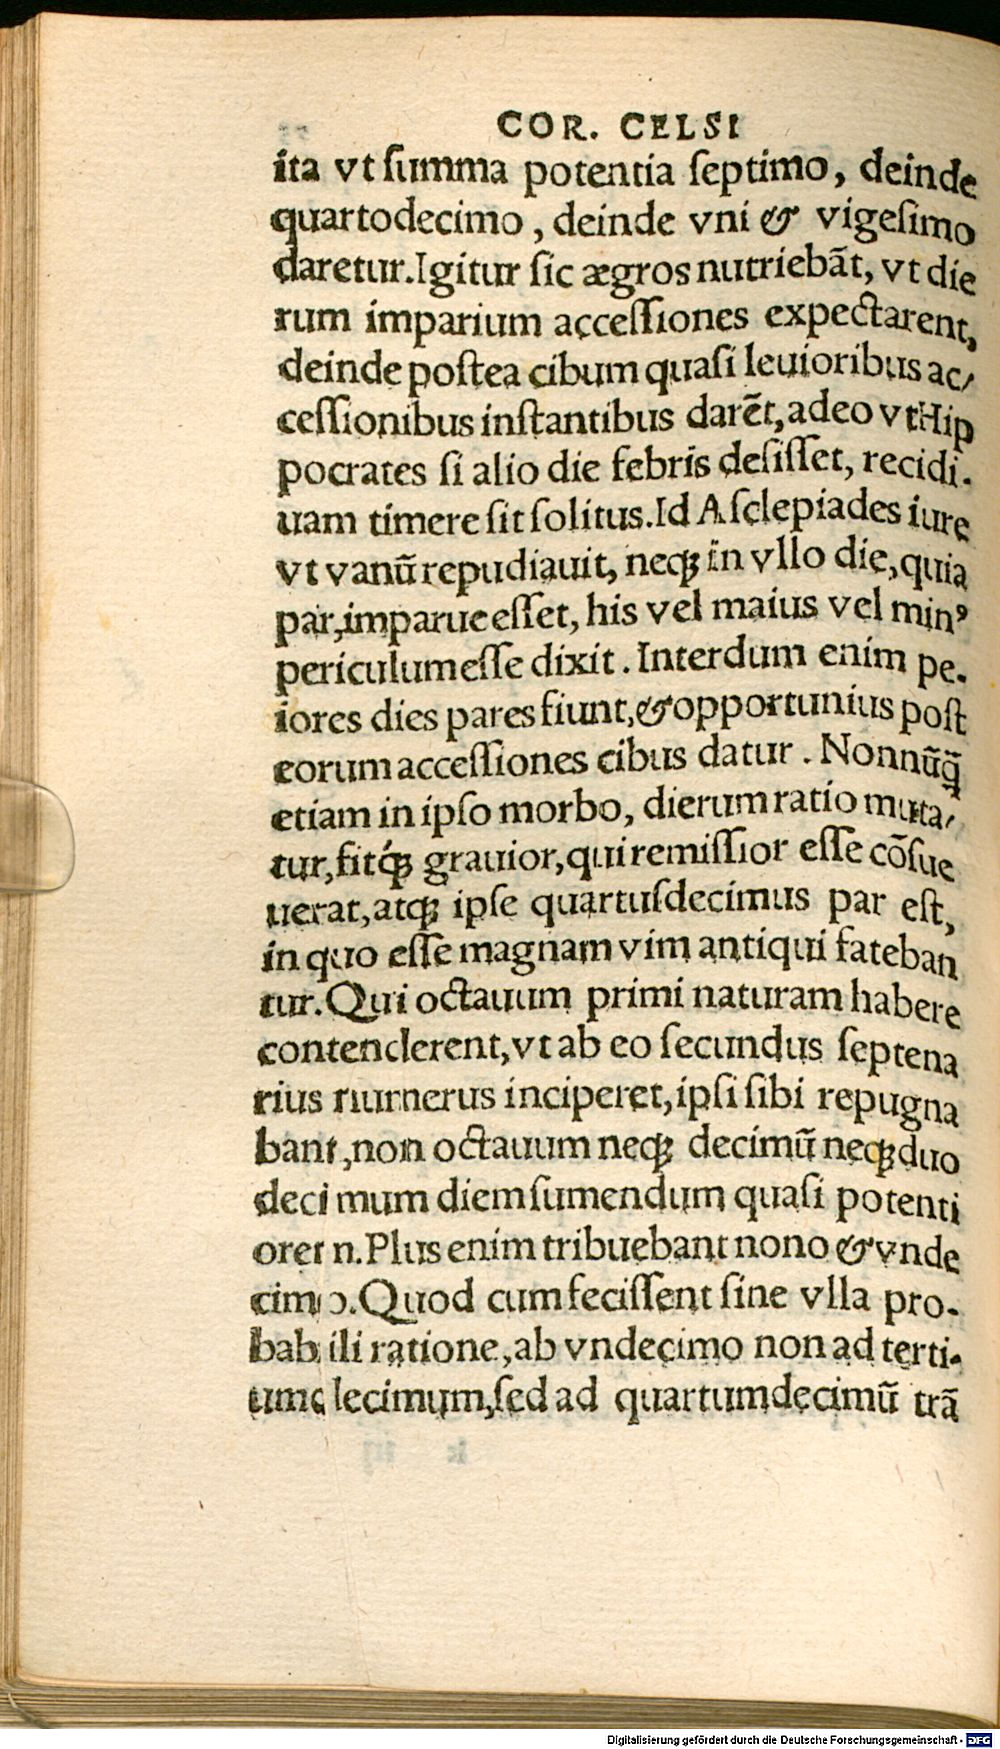 COR. CELSI
ita vt ſumma potentia ſeptimo, deinde
quartodecimo, deinde vni & vigeſimo
daretur. Igitur ſic ægros nutriebãt, vt die
rum imparium acceſſiones expectarent,
deinde poſtea cibum quaſi leuioribus ac/
ceſſionibus inſtantibus darẽt, adeo vt Hip
pocrates ſi alio die febris deſiſſet, recidi.
uam timere ſit ſolitus. Id Aſclepiades iure
vt vanũ repudiauit, neq; in vllo die, quia
par, imparue eſſet, his vel maius vel minꝰ
periculum eſſe dixit. Interdum enim pe.
iores dies pares fiunt, & opportunius poſt
eorum acceſſiones cibus datur. Nonnũq̃
etiam in ipſo morbo, dierum ratio muta/
tur, fitq́; grauior, qui remiſſior eſſe cõſue
uerat, atq; ipſe quartuſdecimus par eſt,
in quo eſſe magnam vim antiqui fateban
tur. Qui octauum primi naturam habere
contenderent, vt ab eo ſecundus ſeptena
rius numerus inciperet, ipſi ſibi repugna
bant, non octauum neq; decimũ neq; duo
decimum diem ſumendum quaſi potenti
orem. Plus enim tribuebant nono & vnde
cimo. Quod cum feciſſent ſine vlla pro.
babili ratione, ab vndecimo non ad terti.
umdecimum, ſed ad quartumdecimũ trã
Digitalisierung gefördert durch die Deutsche Forschungsgemeinschaft - DFG